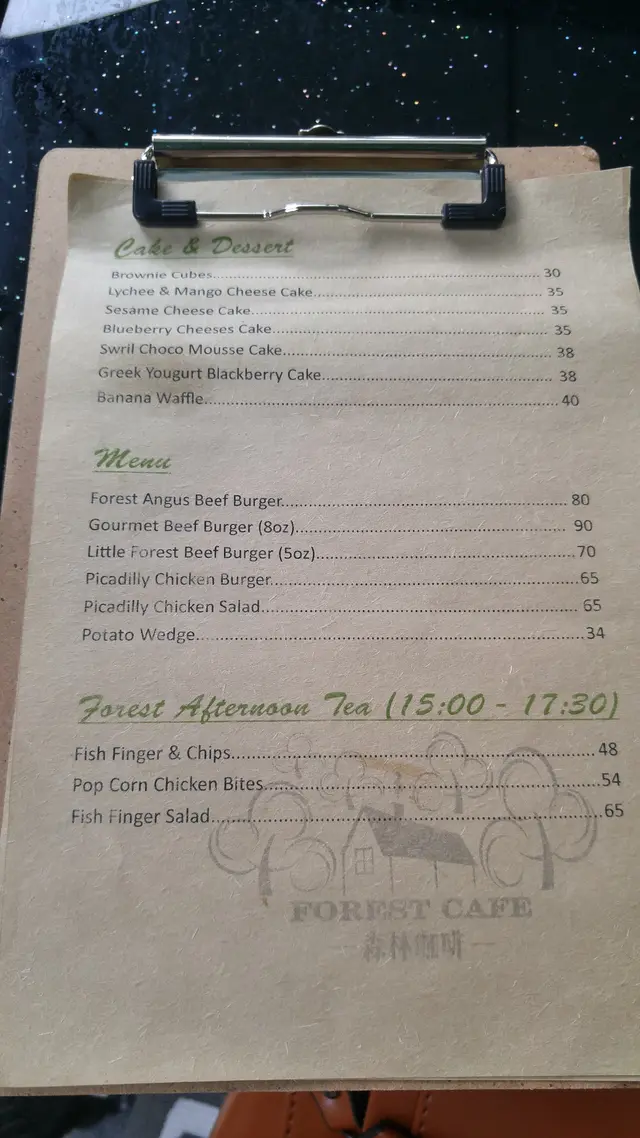 Cake & Dessert
Brownie Cubes.................... 30
Lychee & Mango Cheese Cake.................... 35
Sesame Cheese Cake.................... 35
Blueberry Cheeses Cake.................... 35
Swril Choco Mousse Cake.................... 38
Greek Yougurt Blackberry Cake.................... 38
Banana Waffle.................... 40
Menu
Forest Angus Beef Burger.................... 80
Gourmet Beef Burger (8oz).................... 90
Little Forest Beef Burger (5oz).................... 70
Picadilly Chicken Burger.................... 65
Picadilly Chicken Salad.................... 65
Potato Wedge.................... 34
Forest Afternoon Tea (15:00 - 17:30)
Fish Finger & Chips.................... 48
Pop Corn Chicken Bites.................... 54
Fish Finger Salad.................... 65
FOREST CAFE